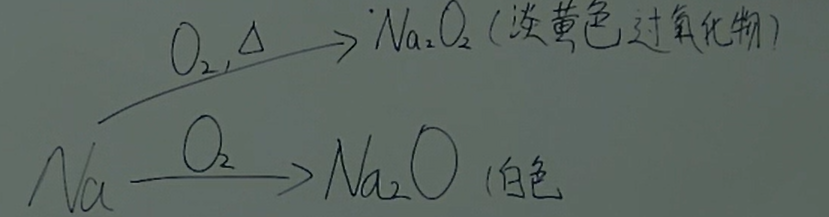 O₂,Δ → Na₂O₂ (淡黄色过氧化物)
Na —O₂→ Na₂O (白色